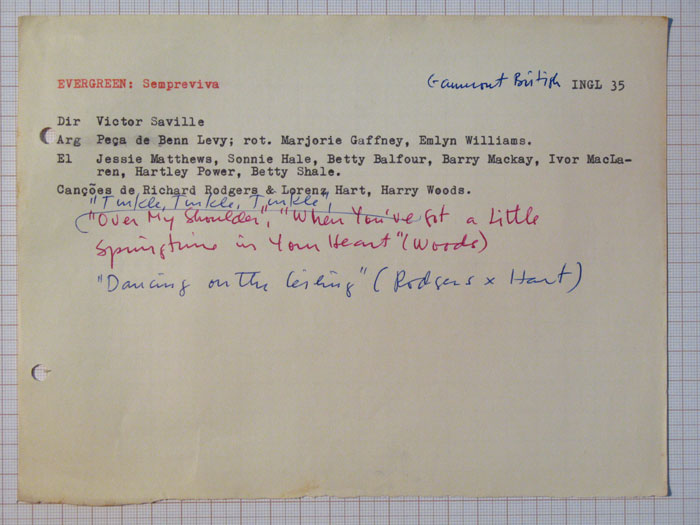 EVERGREEN: Sempreviva Gaumont British INGL 35
Dir Victor Saville
Arg Peça de Benn Levy; rot. Marjorie Gaffney, Emlyn Williams.
El Jessie Matthews, Sonnie Hale, Betty Balfour, Barry Mackay, Ivor MacLa-
ren, Hartley Power, Betty Shale.
Canções de Richard Rodgers & Lorenz Hart, Harry Woods.
"Tinkle, Tinkle, Tinkle",
"Over My Shoulder", "When You've Got a Little
Springtime in Your Heart" (Woods)
"Dancing on the Ceiling" (Rodgers x Hart)